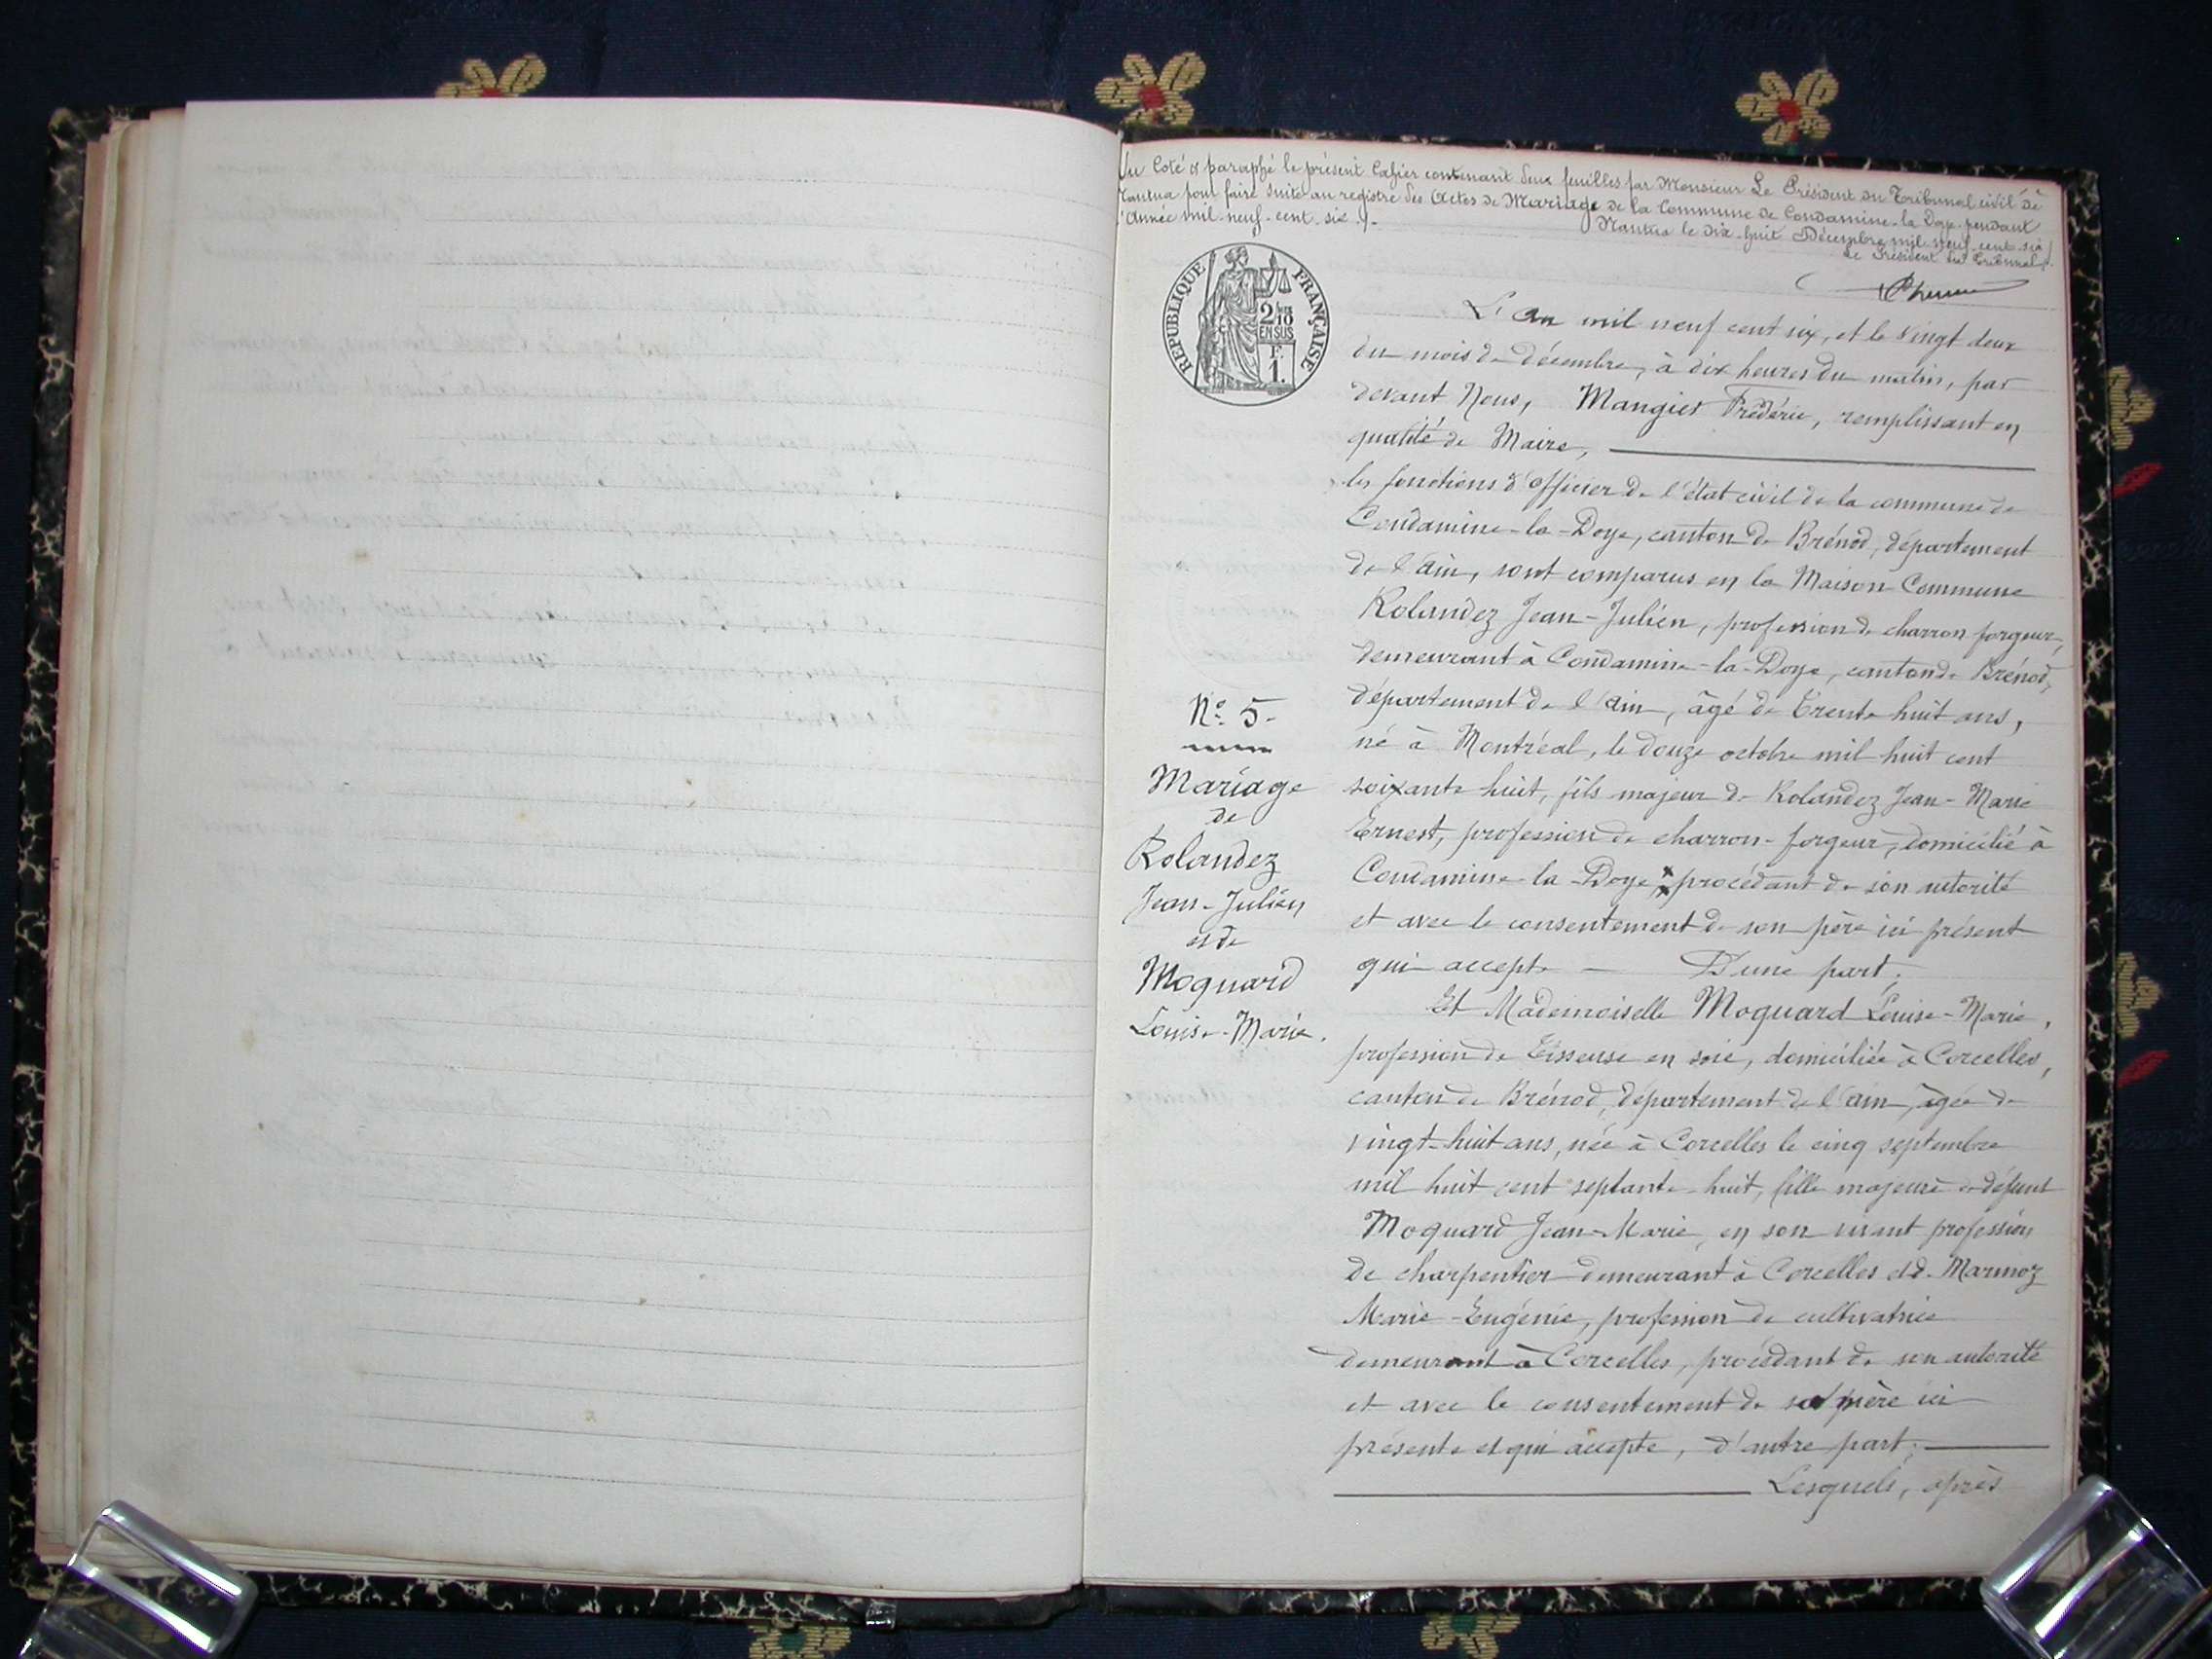 Vu Coté & paraphé le présent Cahier contenant deux feuilles par Monsieur Le Président du Tribunal civil de
Nantua pour faire suite au registre des Actes de Mariage de la Commune de Condamine-la-Doye pendant
l'Année mil-neuf-cent-six
Nantua le dix-huit Décembre mil neuf cent six
Le Président du Tribunal
REPUBLIQUE FRANÇAISE
2/10
EN SUS
F.
1.
L'an mil neuf cent six, et le vingt deux
du mois de décembre, à dix heures du matin, par
devant Nous, Mangier Frédéric, remplissant en
qualité de Maire,
les fonctions d'officier de l'état civil de la commune de
Condamine-la-Doye, canton de Brénod, département
de l'ain, sont comparus en la Maison Commune
Rolandez Jean-Julien, profession de charron forgeur,
demeurant à Condamine-la-Doye, canton de Brénod,
département de l'ain, âgé de trente huit ans,
né à Montréal, le douze octobre mil huit cent
soixante huit, fils majeur de Rolandez Jean-Marie
Ernest, profession de charron-forgeur, domicilié à
Condamine-la-Doye, procédant de son autorité
et avec le consentement de son père ici présent
qui accepte — D'une part;
Et Mademoiselle Moquard Louise-Marie,
profession de Tisseuse en soie, domiciliée à Corcelles,
canton de Brénod, département de l'ain, âgée de
vingt-huit ans, née à Corcelles le cinq septembre
mil huit cent septante-huit, fille majeure de défunt
Moquard Jean-Marie, en son vivant profession
de charpentier demeurant à Corcelles et de Marmoz
Marie-Eugénie, profession de cultivatrice
demeurant à Corcelles, procédant de son autorité
et avec le consentement de sa mère ici
présente et qui accepte, d'autre part;
Lesquels, après
N° 5-
Mariage
de
Rolandez
Jean-Julien
et de
Moquard
Louise-Marie.